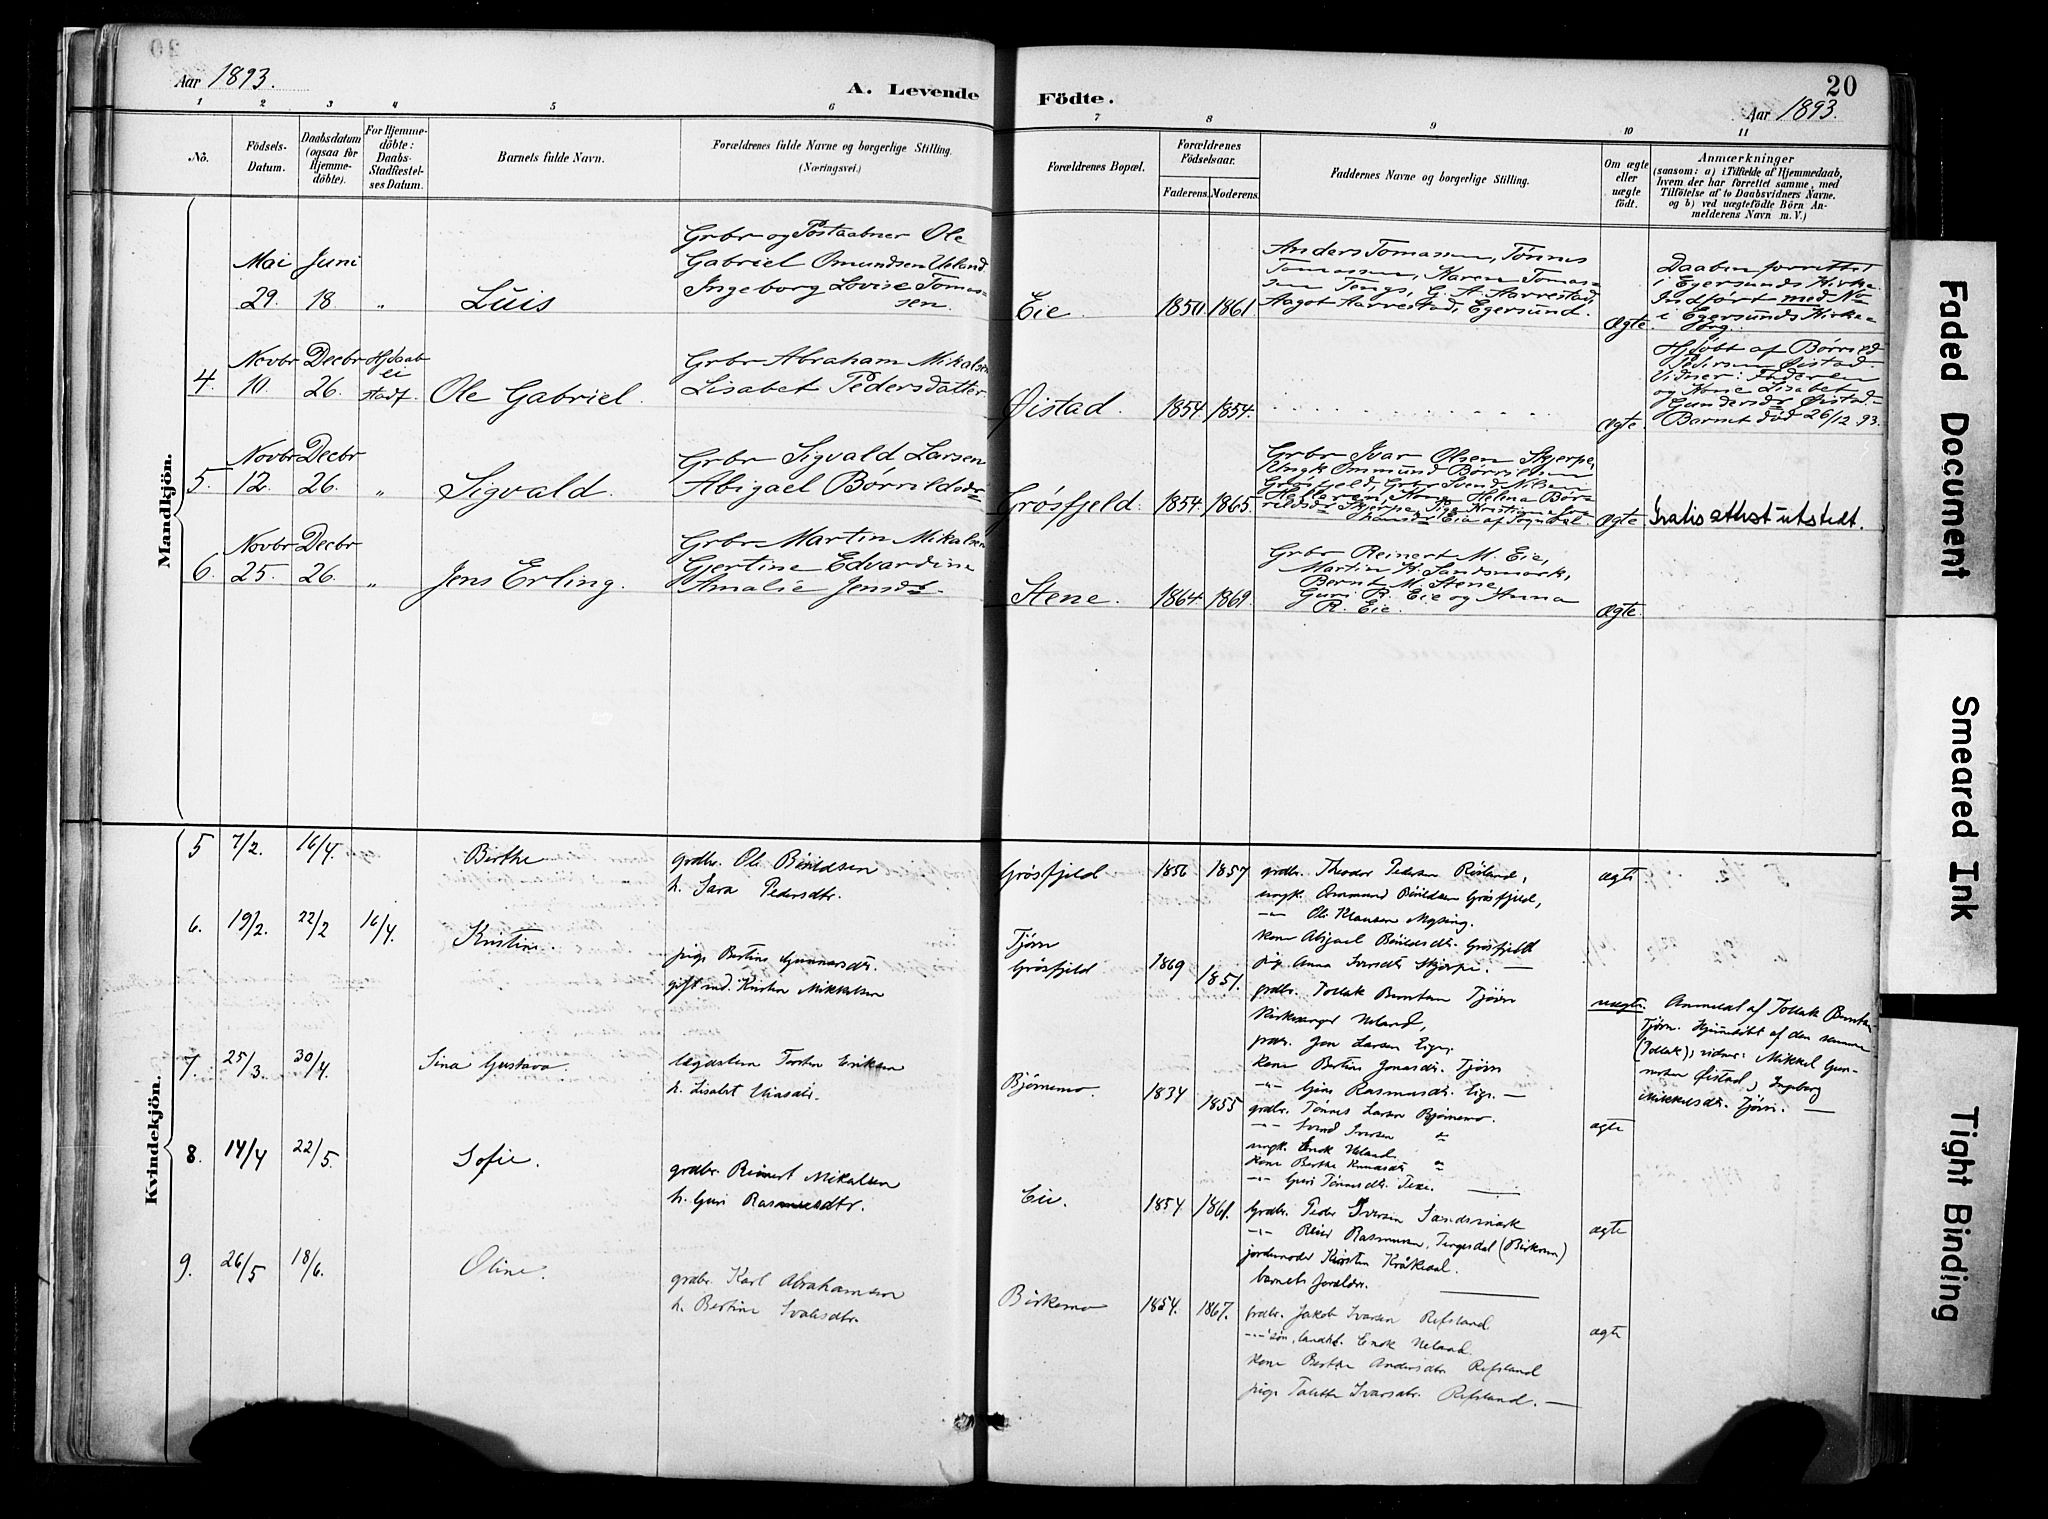 Aar 1893.
A. Levende Födte.
20
Aar 1893.
1 2 3 4 5 6 7 8 9 10 11
No.
Födsels-Datum.
Daabsdatum (ogsaa for Hjemme-döbte).
For Hjemme-döbte: Daabs-Stadfæstel-ses Datum.
Barnets fulde Navn.
Forældrenes fulde Navne og borgerlige Stilling.
(Næringsvei.)
Forældrenes Bopæl.
Forældrenes Födselsaar.
Faderens. Moderens.
Faddernes Navne og borgerlige Stilling.
Om ægte eller uægte födt.
Anmærkninger
(saasom: a) i Tilfælde af Hjemmedaab,
hvem der har forrettet samme, med
Tilföielse af to Daabsvidners Navne,
og b) ved uægtefödte Börn An-
melderens Navn m. V.)
Mandkjön.
Mai 29. Juni 18 " Luis
Grbr og Postaabner Ole
Gabriel Omundsen Ueland
Ingeborg Lovise Tomas-
sen
Eie. 1850. 1861
Anders Tomassen, Tönnes
Tomassen, Karen Tomas-
sen Tengs, G. A. Aarrestad,
Aagot Aarrestad, Egersund.
Ægte.
Daaben forrettet
i Egersunds Kirke.
Indfört med No
i Egersunds Kirke-
borg.
4. Novbr 10. Decbr 26. Hjdaab ei stadf. Ole Gabriel.
Grbr Abraham Mikalsen
Lisabet Pedersdatter
Øistad. 1854. 1854.
ægte.
Hjdöbt af Börrild
Pedersen Øistad.
Vidner: Faderen
og Kone Lisabet
Gundersdr Øistad.
Barnet död 26/12 93.
5. Novbr 12. Decbr 26. " Sigvald.
Grbr Sigvald Larsen
Abigael Börrildsdr
Grösfjeld. 1854. 1865.
Grbr Ivar Olsen Skjerpe,
Ungk Ommund Börrildsen
Grösfjeld, Grbr Svend Nilsen
Helleren, Kone Helena Bör-
rildsdr Skjerpe, Pige Kristiane
Eie af Sogndal
Ægte
Gratis attest utstedt.
6. Novbr 25. Decbr 26. " Jens Erling.
Grbr Martin Mikalsen
Gjertine Edvardine
Amalie Jensdr.
Stene. 1864. 1869.
Grbr Reinert M. Eie,
Martin H. Sandsmark,
Bernt M. Stene,
Guri R. Eie og Anna
R. Eie.
Ægte.
Kvindekjön.
5 7/2. 16/4. Berthe
grdbr. Ole Börildsen
h. Sara Pedersdtr.
Grösfjeld 1856 1857
grdbr. Theodor Pedersen Rösland,
ungk. Ommund Börildsen Grösfjeld,
-"- Ole Klausen Mysing.
kone Abigael Börildsdtr. Grösfjeld
pig. Anna Ivarsdtr Skjerpe. —
ægte
6. 19/2. 22/2 16/4. Kristine.
pige Bertine Gunnarsdtr.
gift md. Kristen Mikkelsen
Tjörn
Grösfjeld 1869 1851.
grdbr. Tollak Berntsen Tjörn
Kirkesanger Ueland,
grdbr. Jon Larsen Eige,
kone Bertine Jonasdtr. Tjörn
-"- Gine Rasmusdtr. Eige. —
uægte.
Anmeldt af Tollak Berntsen
Tjörn. Hjemdöbt af den samme
(Tollak); vidner: Mikkel Gun-
narsen Øistad, Ingeborg
Mikkelsdtr. Tjörn. —
7. 25/3. 30/4. Sina Gustava.
lægdslem Torsten Eriksen
h. Lisabet
Bjørnemo 1834 1855
grdbr. Tönnes Larsen Bjørnemo.
-"- Svend Iversen "
ungk. Enok Ueland.
kone Berthe "
-"- Guri Tönnesdtr. —
ægte
8. 14/4 22/5. Sofie.
grdbr. Reinert Mikalsen
h. Guri Rasmusdtr.
Eie. 1854. 1861.
Grdbr. Peder Iversen Sandsmark
-"- Reier Rasmussen, Tengesdal (Birkrem)
jordemoder Kirsten Kråkedal.
barnets forældre. —
ægte
9. 26/5 18/6. Oline.
grdbr. Karl Abrahamsen
h. Bertine
Birkemo 1854. 1867.
grdbr. Jakob Ivarsen Refsland
-"- sön, landhl. Enok Ueland.
kone Berthe Andersdtr Refsland
pige Talette Ivarsdtr. Refsland. —
ægte
Faded Document
Smeared Ink
Tight Binding